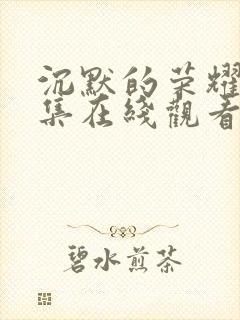 沉默的荣耀
集在綫觀看
碧水煎茶